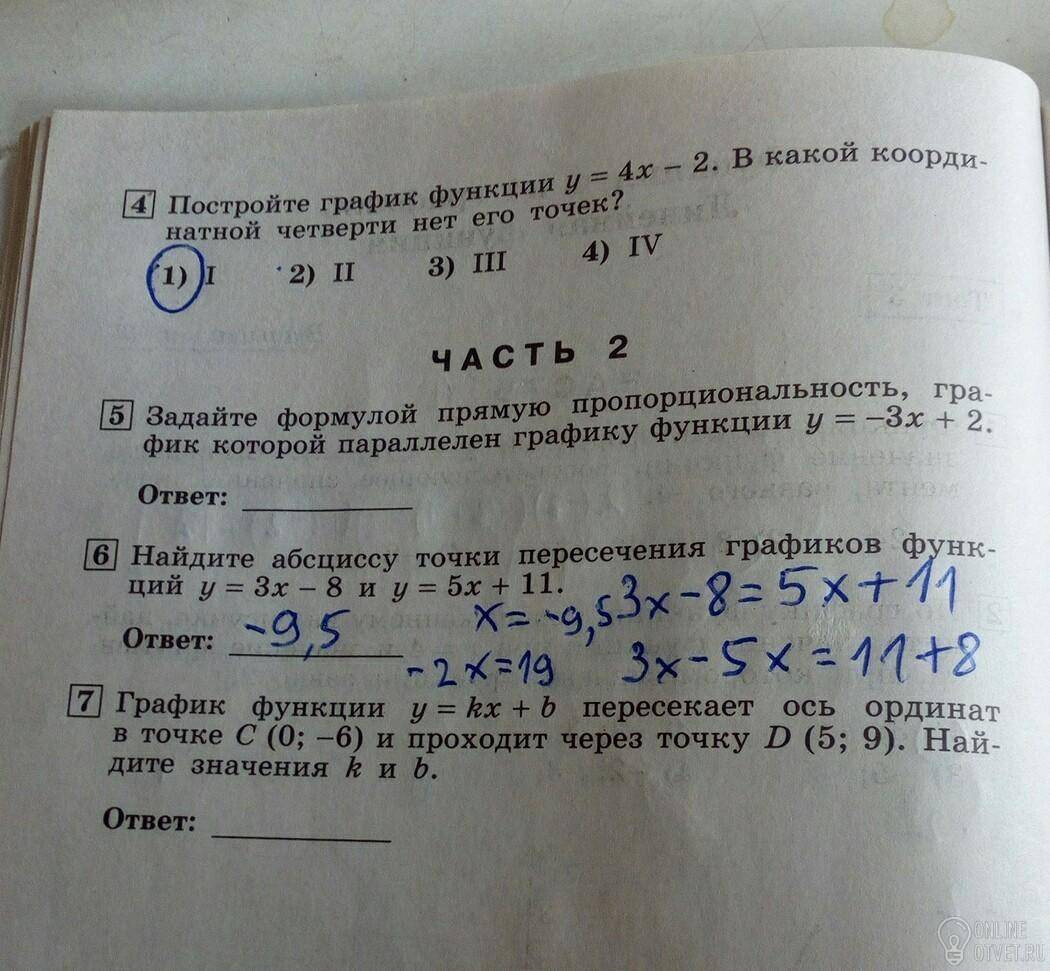 4 Постройте график функции y = 4x − 2. В какой коорди-
натной четверти нет его точек?
1) I 2) II 3) III 4) IV
ЧАСТЬ 2
5 Задайте формулой прямую пропорциональность, гра-
фик которой параллелен графику функции y = −3x + 2.
Ответ:
6 Найдите абсциссу точки пересечения графиков функ-
ций y = 3x − 8 и y = 5x + 11.
3x − 8 = 5x + 11
Ответ: -9,5 x = -9,5
-2x = 19 3x − 5x = 11 + 8
7 График функции y = kx + b пересекает ось ординат
в точке C (0; −6) и проходит через точку D (5; 9). Най-
дите значения k и b.
Ответ:
ONLINE
OTVET.RU